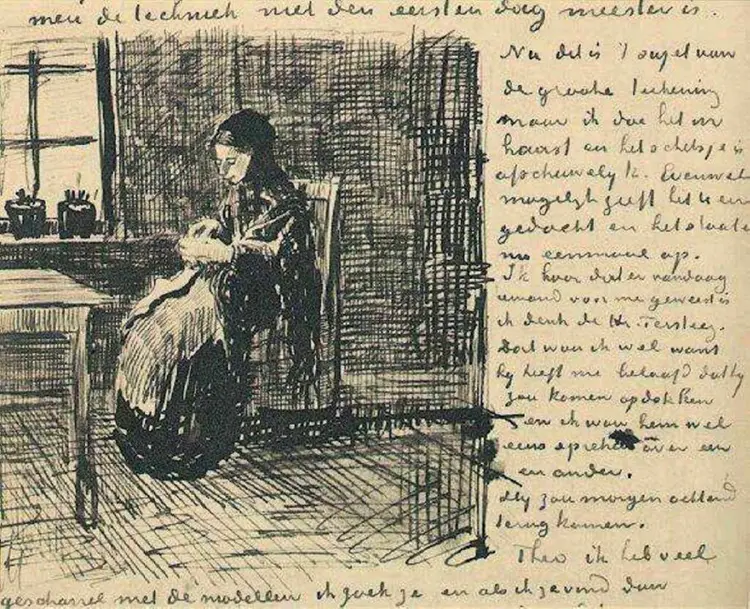 men de techniek niet den eersten dag meester is.
Nu dit is 't sujet van
de groote teekening
maar ik doe het in
haast en het schetsje is
afschuwelijk. Evenwel
mogelijk geeft het U een
gedacht en het staat
me eenmaal op.
Ik hoor dat er vandaag
iemand voor me geweest is
ik denk de Hr. Tersteeg.
dat wou ik wel want
hij heeft me beloofd dat hij
zou komen opdokken
en ik wou hem wel
eens spreken over een
en ander.
Hij zou morgen ochtend
terug komen.
Theo ik heb veel
gescharrel met de modellen ik zoek ze en als ik ze vind dan